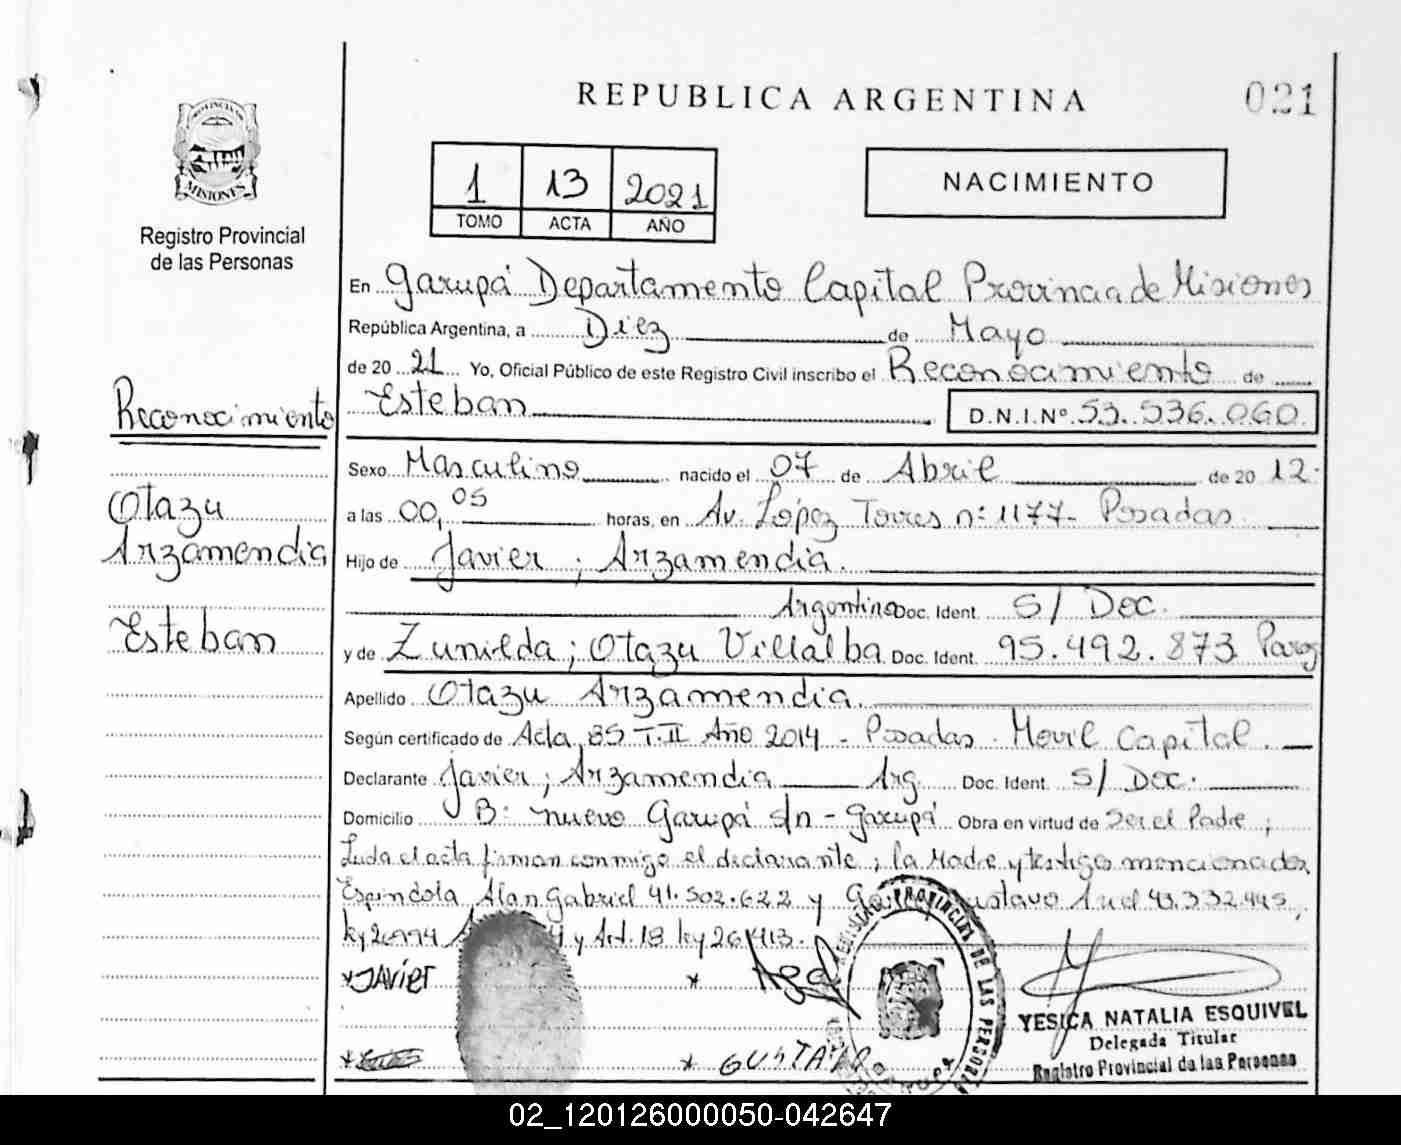 REPUBLICA ARGENTINA
021
PROVINCIA DE
MISIONES
Registro Provincial
de las Personas
1 13 2021
TOMO ACTA AÑO
NACIMIENTO
En Garupá Departamento Capital Provincia de Misiones
República Argentina, a Diez de Mayo
de 20 21 Yo, Oficial Público de este Registro Civil inscribo el Reconocimiento de
Esteban D.N.I.Nº 53.536.060
Reconocimiento
Otazu
Arzamendia
Esteban
Sexo Masculino nacido el 07 de Abril de 20 12
a las 00,05 horas, en Av. López Torres nº 1177- Posadas
Hijo de Javier ; Arzamendia.
Argentino Doc. Ident. S/ Doc.
y de Zunilda; Otazu Villalba Doc. Ident. 95.492.873 Parag
Apellido Otazu Arzamendia.
Según certificado de Acta 85 T.II Año 2014 - Posadas - Movil Capital.
Declarante Javier; Arzamendia Arg. Doc. Ident. S/ Doc.
Domicilio B: nuevo Garupá s/n - Garupá Obra en virtud de Ser el Padre ;
Leída el acta firman conmigo el declarante ; la Madre y testigos mencionados
Espíndola Alan Gabriel 41.502.622 y Gustavo 43.332.445,
y Art. 18 ley 26.413.
*JAVIER *
* * GUSTAVO
REGISTRO PROVINCIAL DE LAS PERSONAS
GARUPA
YESICA NATALIA ESQUIVEL
Delegada Titular
Registro Provincial de las Personas
02_120126000050-042647